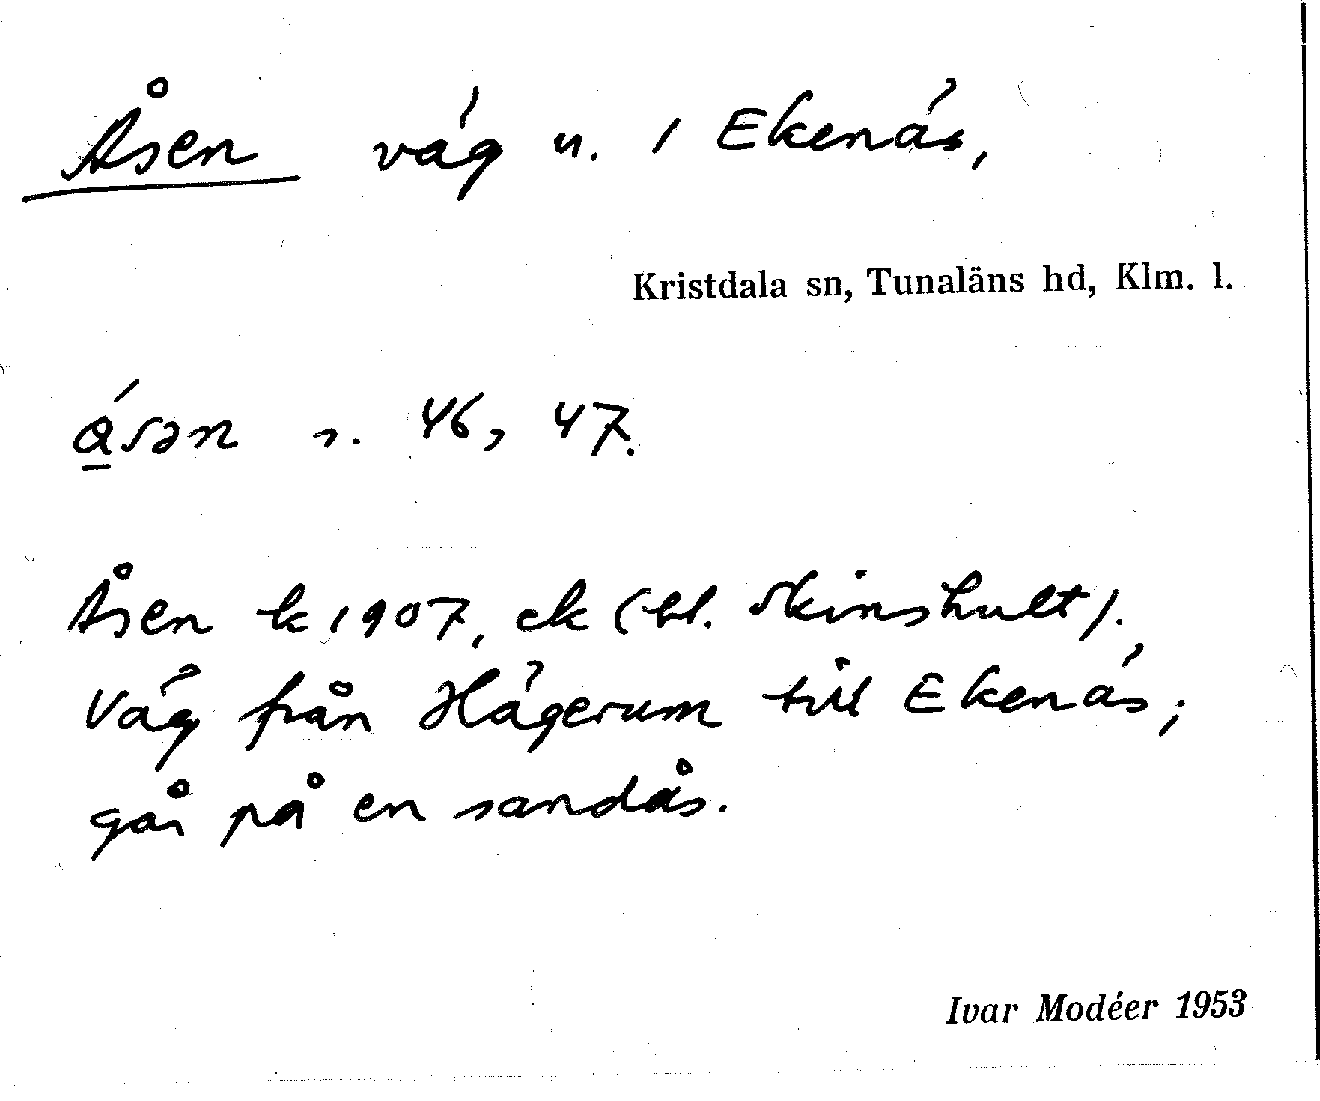 Åsen väg u. / Ekenäs,
Kristdala sn, Tunaläns hd, Klm. l.
s. 46, 47.
Åsen k 1907, ek (bl. Skinshult).
Väg från Hägerum till Ekenäs;
går på en sandås.
Ivar Modéer 1953